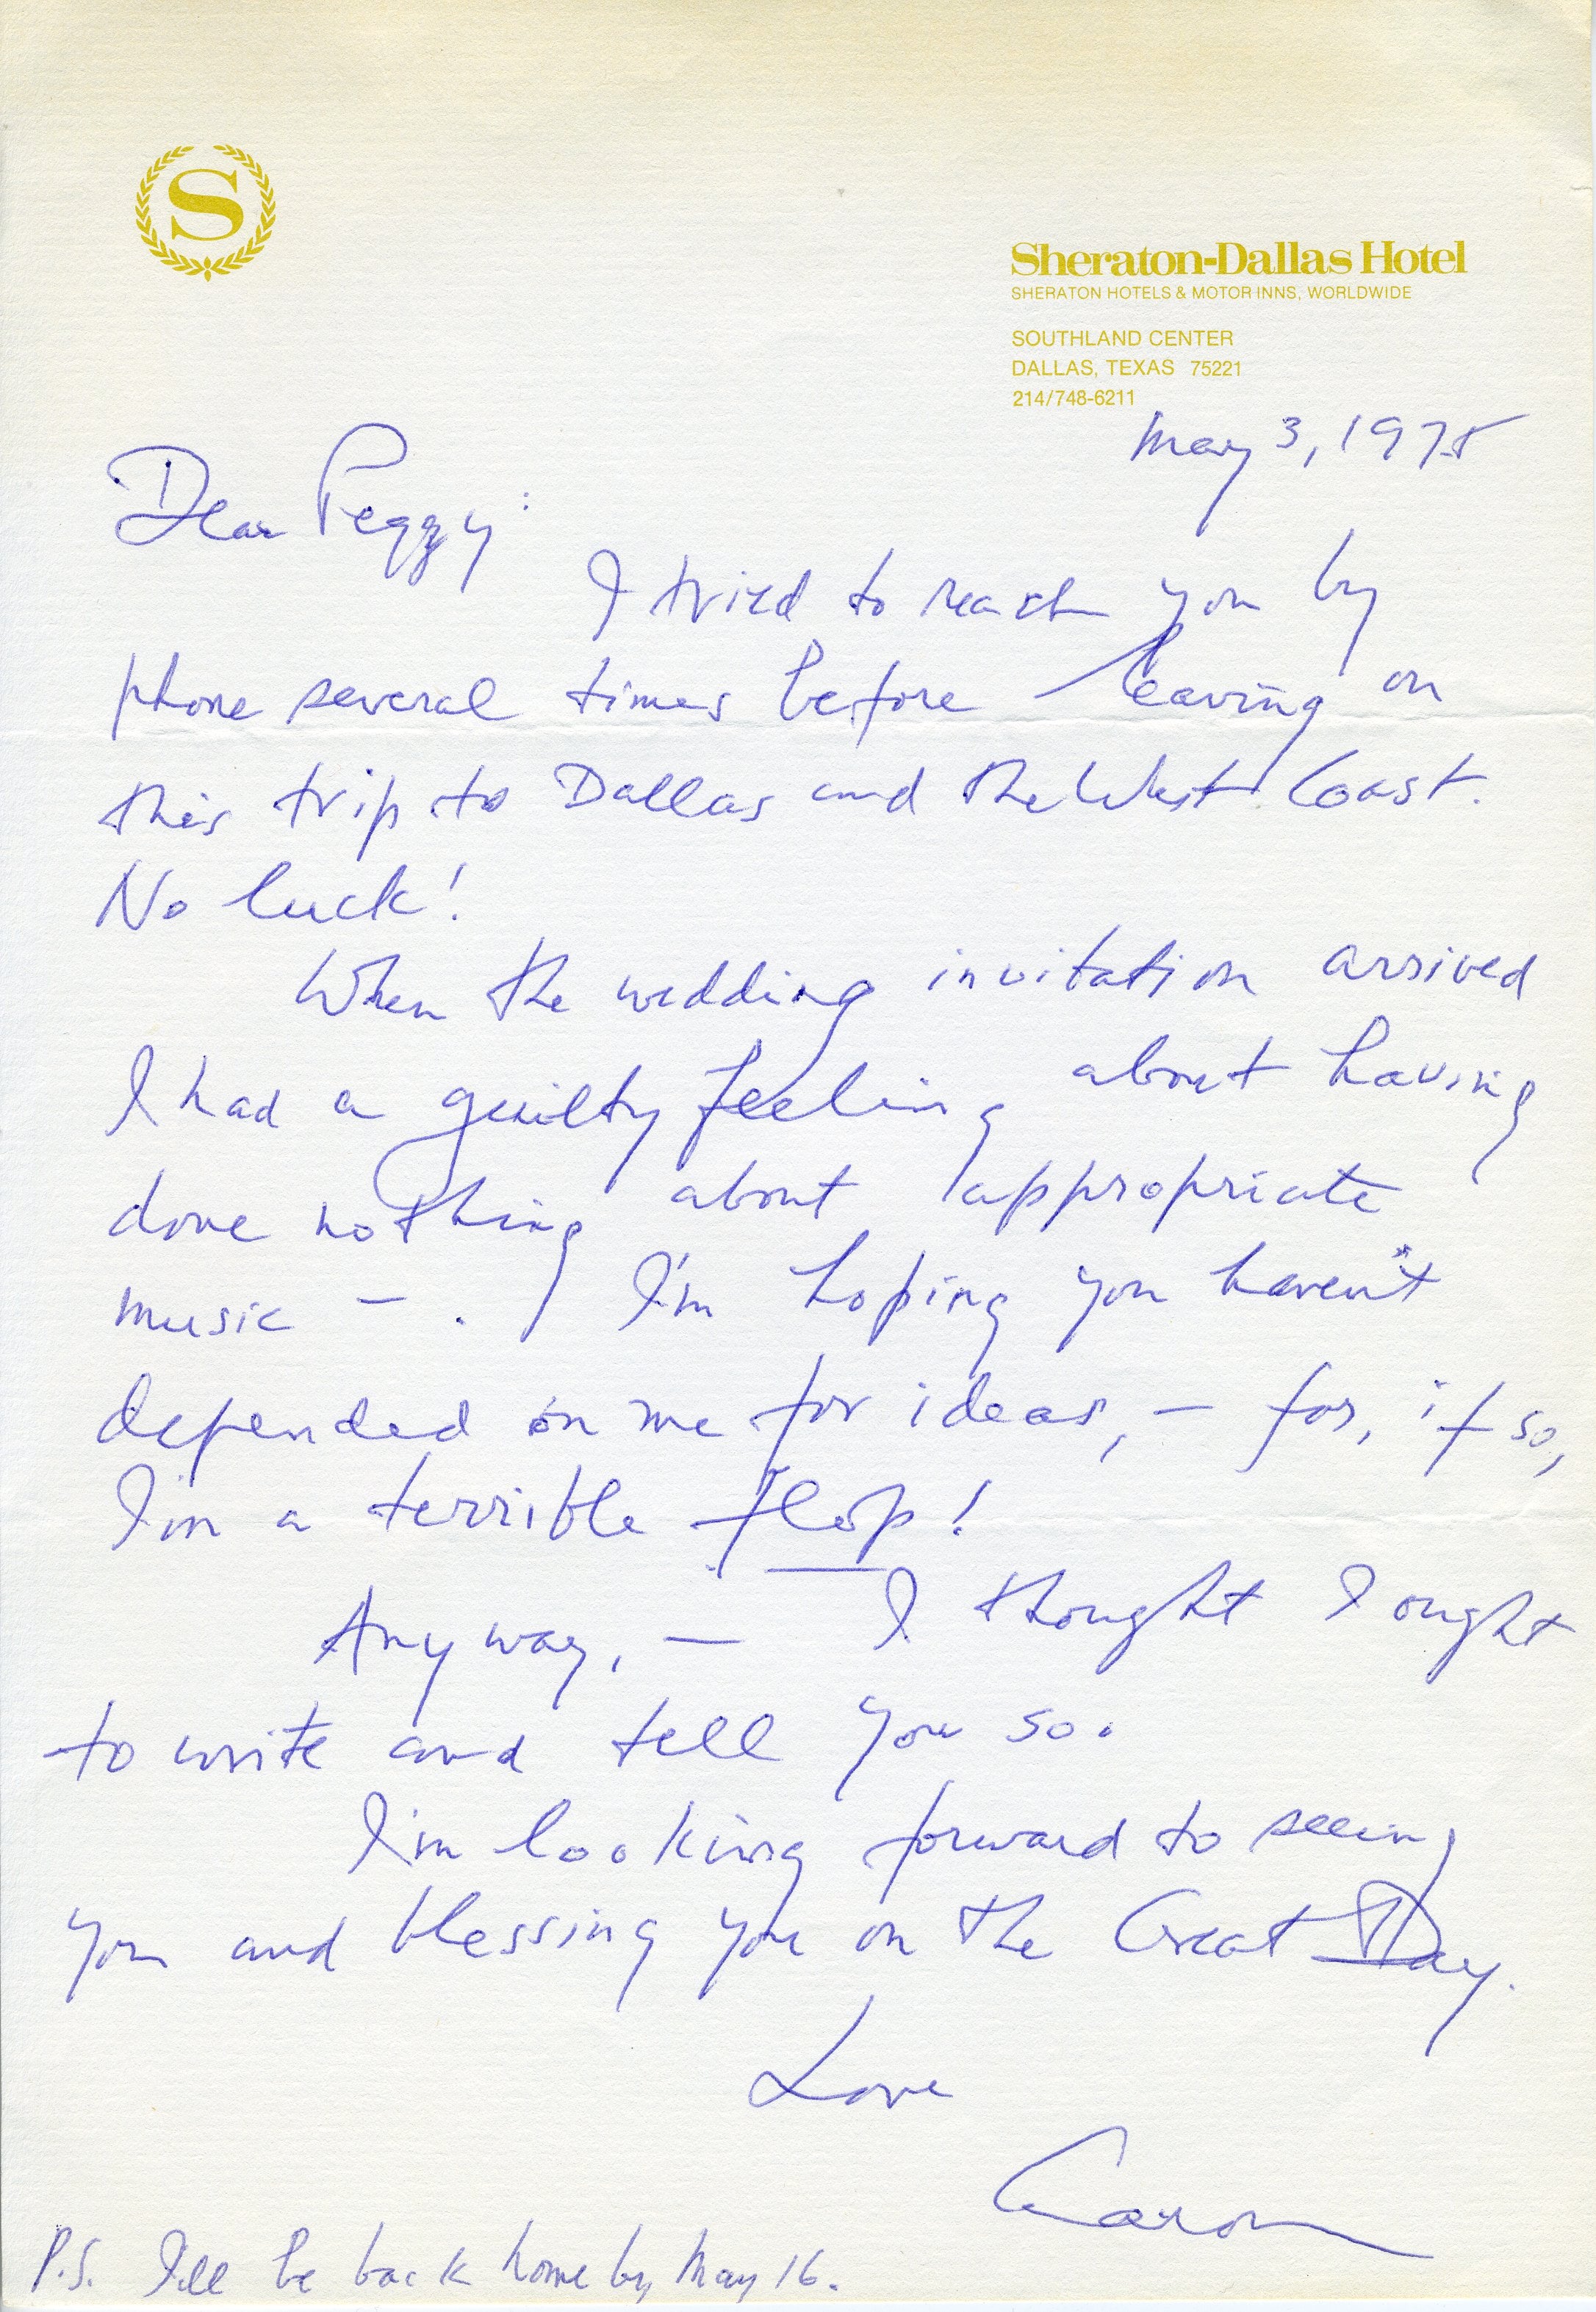 S
Sheraton-Dallas Hotel
SHERATON HOTELS & MOTOR INNS, WORLDWIDE
SOUTHLAND CENTER
DALLAS, TEXAS 75221
214/748-6211
May 3, 1975
Dear Peggy:
I tried to reach you by
phone several times before leaving on
this trip to Dallas and the West Coast.
No luck!
When the wedding invitation arrived
I had a guilty feeling about having
done nothing about appropriate
music – . I'm hoping you haven't
depended on me for ideas, – for, if so,
I'm a terrible flop!
Anyway, – I thought I ought
to write and tell you so.
I'm looking forward to seeing
you and blessing you on the Great Day.
Love
Aaron
P.S. I'll be back home by May 16.